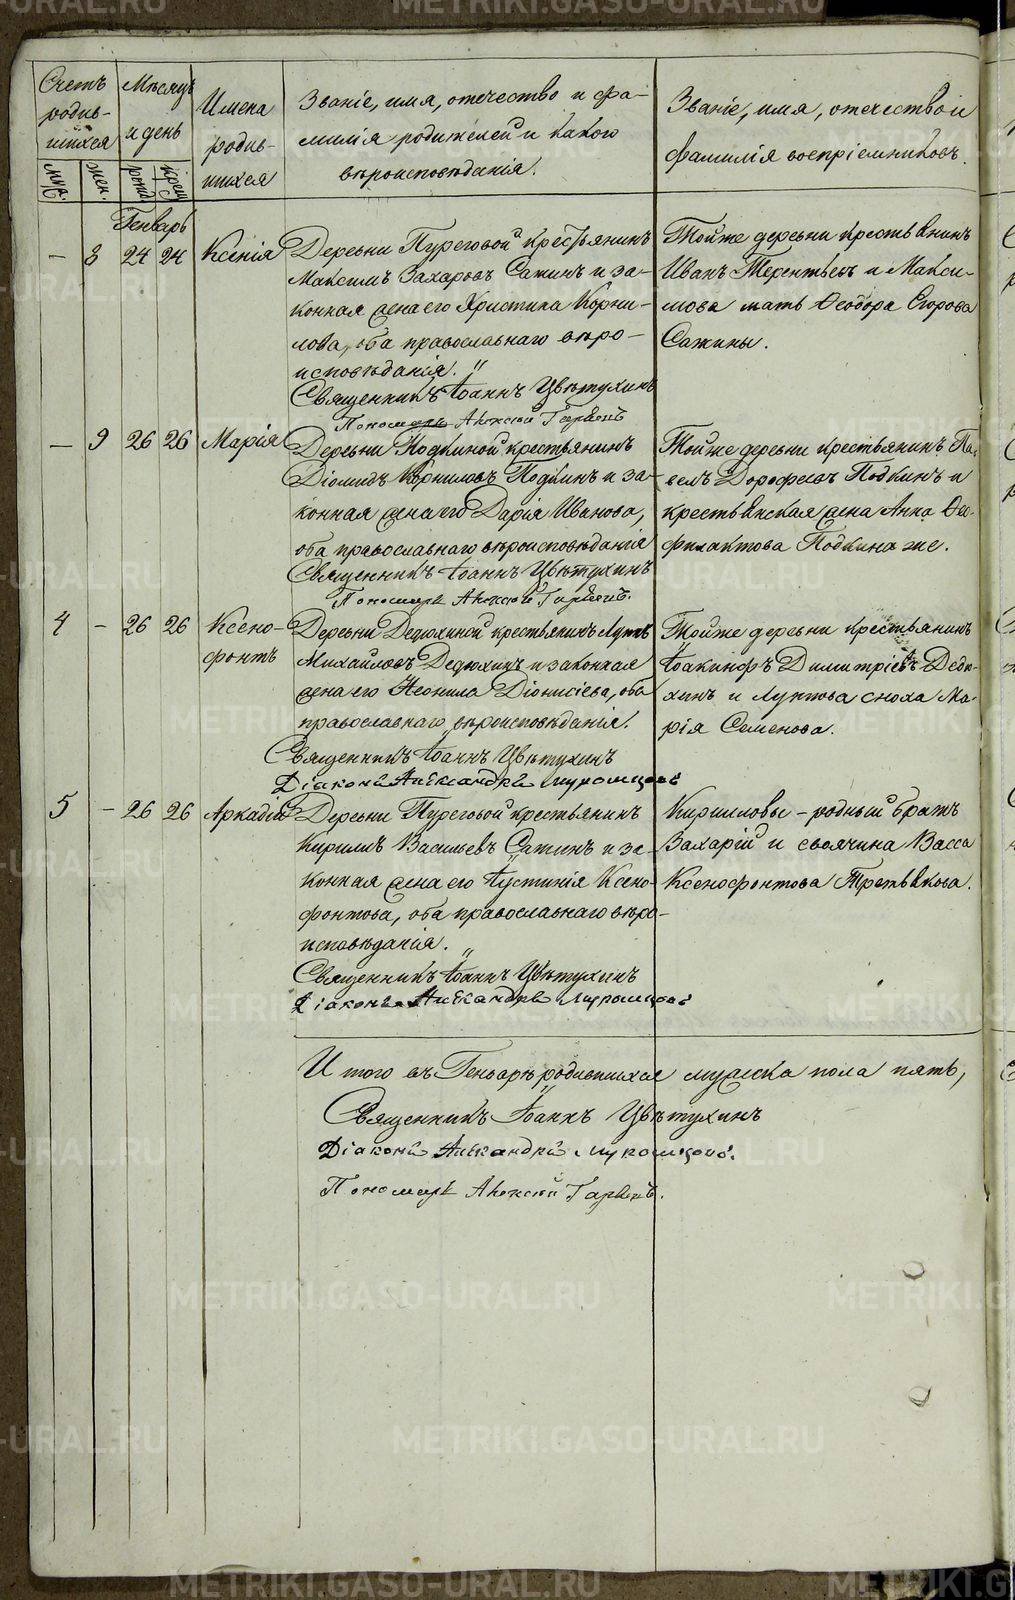 Счетъ родив-
шихся
муж.
жен.
Мѣсяцъ
и день
рожд.
крещ.
Имена
родив-
шихся
Званіе, имя, отчество и фа-
милія родителей и какого
вѣроисповѣданія.
Званіе, имя, отечество и
фамилія воспріемниковъ.
Генварь
— 8 24 24 Ксенія
Деревни Пуреговой крестьянинъ
Максимъ Захаровъ Сажинъ и за-
конная жена его Христина Корни-
лова, оба православнаго вѣро-
исповѣданія.
Священникъ Іоаннъ Цвѣтухинъ
Пономарь Алексѣй
Тойже деревни крестьянинъ
Иванъ Терентьевъ и Макси-
мова мать Ѳеодора Егорова
Сажины.
— 9 26 26 Марія
Деревни Подкиной крестьянинъ
Діомидъ Корниловъ Подкинъ и за-
конная жена его Дарія Иванова,
оба православнаго вѣроисповѣданія
Священникъ Іоаннъ Цвѣтухинъ
Пономарь Алексѣй
Тойже деревни крестьянинъ Па-
велъ Дорофеевъ Подкинъ и
крестьянская жена Анна Ѳео-
филактова Подкина же.
4 — 26 26 Ксено-
фонтъ
Деревни Дедюхиной крестьянинъ Луппъ
Михайловъ Дедюхинъ и законная
жена его Неонила Діонисіева, оба
православнаго вѣроисповѣданія.
Священникъ Іоаннъ Цвѣтухинъ
Діаконъ Александръ
Тойже деревни крестьянинъ
Іоакинфъ Димитріевъ Дедю-
хинъ и Луппова сноха Ма-
рія Семенова.
5 — 26 26 Аркадій
Деревни Пуреговой крестьянинъ
Кириллъ Васильевъ Сажинъ и за-
конная жена его Іустинія Ксено-
фонтова, оба православнаго вѣро-
исповѣданія.
Священникъ Іоаннъ Цвѣтухинъ
Діаконъ Александръ
Кирилловы - родный братъ
Захарій и своячина Васса
Ксенофонтова Третьякова.
Итого въ Генварѣ родившихся мужеска пола пять,
Священникъ Іоаннъ Цвѣтухинъ
Діаконъ Александръ
Пономарь Алексѣй
METRIKI.GASO-URAL.RU